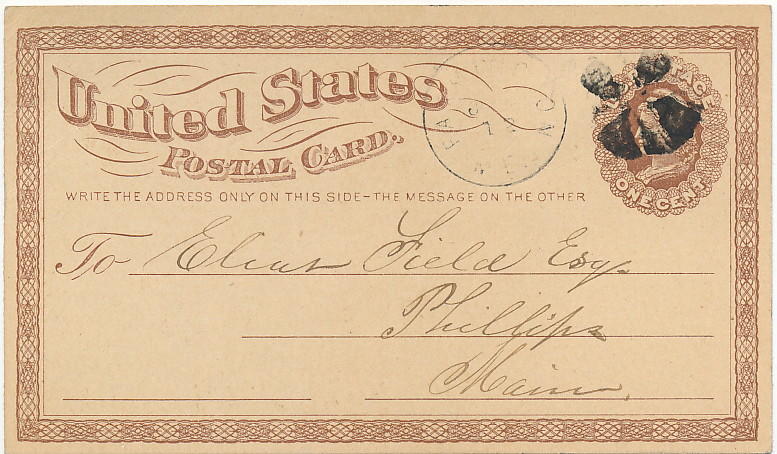 United States
POSTAL CARD.
WRITE THE ADDRESS ONLY ON THIS SIDE—THE MESSAGE ON THE OTHER
ONE CENT
To Field Esq.
Phillips
Main